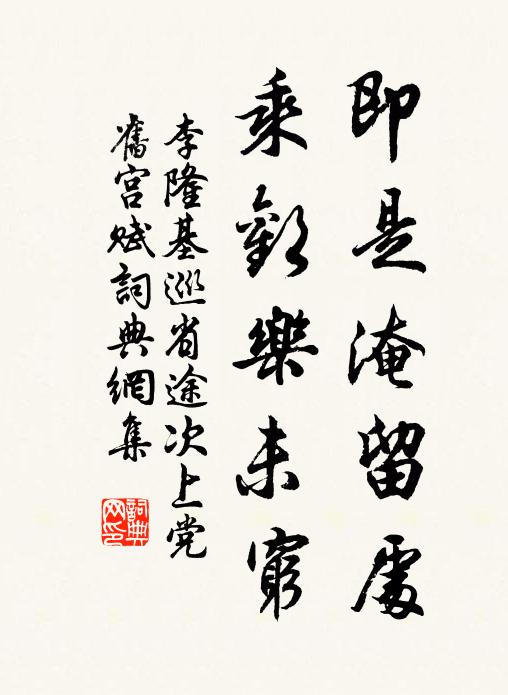 即是淹留處
乘歡樂未窮
李隆基巡省途次上党
舊宫赋詞典網集
詞典
网印